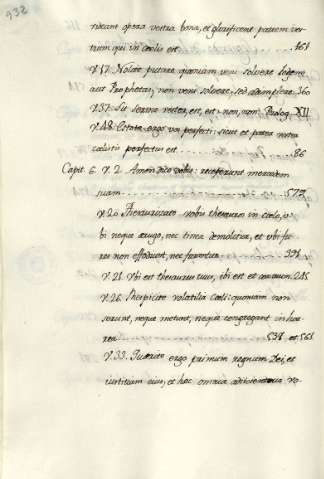 932
deant opera vestra bona, et glorificent patrem ves-
trum qui in coelis est ........ 461
V. 17. Nolite putare quoniam veni solvere legem
aut Prophetas; non veni solvere, sed adimplere. 360
V. 37. Sit sermo vester, est, est: non, non. Prolog. XII
V. 48. Estote ergo vos perfecti, sicut et pater vester
coelestis perfectus est ........ 86
Capit. 6. V. 2. Amen dico vobis: receperunt mercedem
suam ........ 572
V. 20. Thesaurizate vobis thesauros in coelo, u-
bi neque aerugo, nec tinea demolitur, et ubi fu-
res non effodiunt, nec furantur ........ 391
V. 21. Ubi est thesaurus tuus, ibi est et cor tuum. 245
V. 26. Respicite volatilia Coeli: quoniam non
serunt, neque metunt, neque congregant in hor-
rea ........ 538 et 561
V. 33. Quaerite ergo primum regnum Dei, et
iustitiam eius, et haec omnia adiicientur vo-